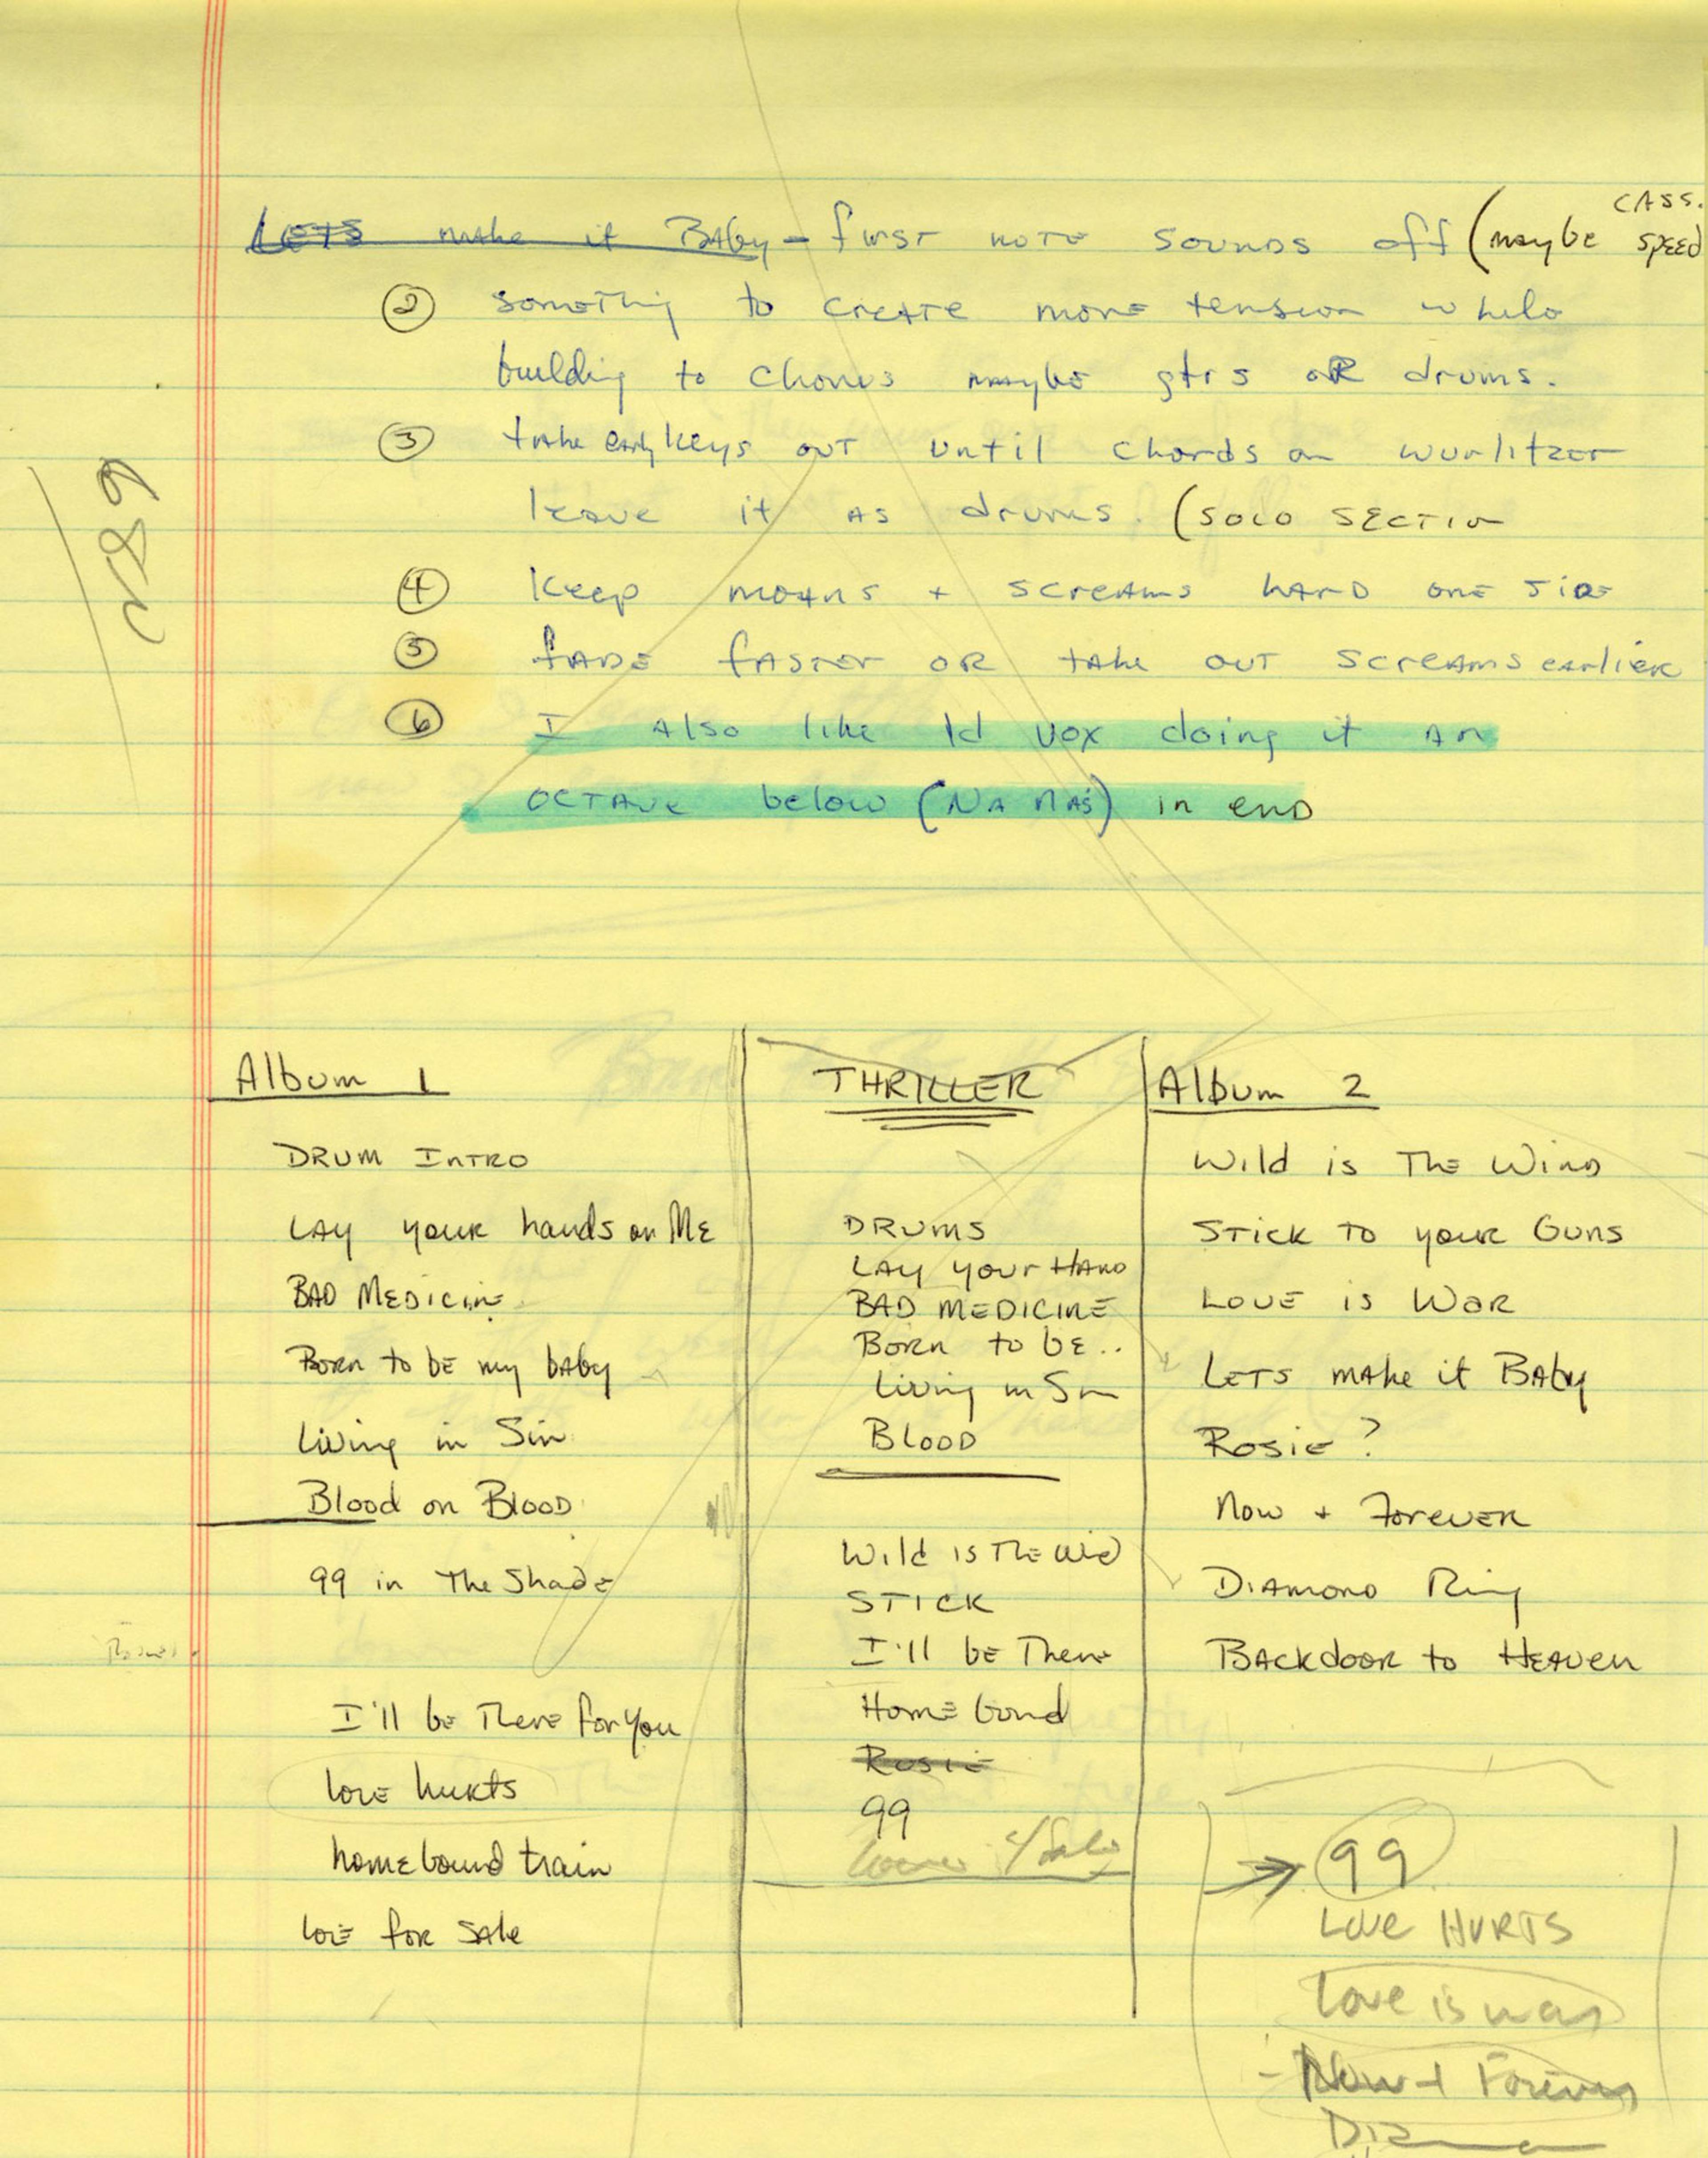 CASS.
LETS make it BAby - first note sounds off (maybe speed
② something to create more tension while
building to chorus maybe gtrs OR drums.
③ take early keys out until chords on wurlitzer
leave it as drums. (SOLO SECTIO
④ keep moans + screams hard one side
⑤ fade faster OR take out screams earlier
⑥ I also like ld vox doing it an
octave below (NA NAs) in end
Album 1
DRUM INTRO
LAY your hands on Me
BAD MEDICINE
Born to be my baby
Living in Sin
Blood on Blood
99 in The Shade
I'll be There for you
love hurts
homebound train
love for sale
THRILLER
DRUMS
LAY your HAND
BAD MEDICINE
Born to be..
Living in Sin
BLOOD
Wild is The Wid
STICK
I'll be There
Home bound
Rosie
99
Love 4 Sale
Album 2
Wild is The Wind
STICK TO your Guns
LOVE is WAR
LETS make it BAby
Rosie?
Now + Forever
DIAMOND Ring
BACKdoor to HEAVEN
99
LOVE HURTS
Love is war
- Now + Forever